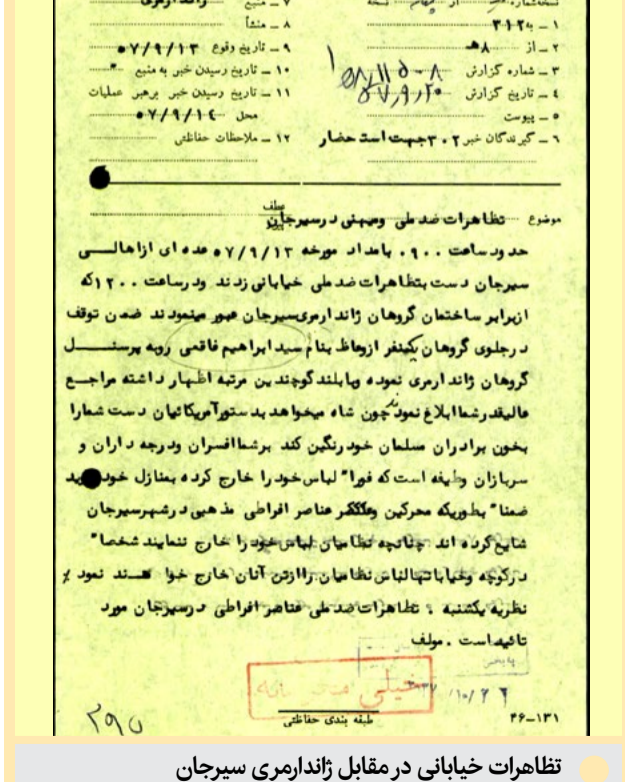 نسخه شماره از نسخه
۷ – منبع ژاندارمری
۱ – به ۳۱۲
۸ – منشأ
۲ – از ۸هـ
۹ – تاریخ وقوع ۵۷/۹/۱۳
۳ – شماره گزارش
۱۰ – تاریخ رسیدن خبر به منبع
۴ – تاریخ گزارش ۵۷/۹/۲۰
۱۱ – تاریخ رسیدن خبر برهبر عملیات
محل ۵۷/۹/۱۴
۵ – پیوست
۶ – گیرندگان خبر ۳۰۲ جهت استحضار
۱۲ – ملاحظات حفاظتی
موضوع تظاهرات ضد ملی ومیهنی درسیرجان
عطف
حدود ساعت ۰۹۰۰ بامداد مورخه ۵۷/۹/۱۳ عده ای ازاهالی
سیرجان دست بتظاهرات ضد ملی خیابانی زدند ودرساعت ۱۲۰۰ که
ازبرابر ساختمان گروهان ژاندارمری سیرجان عبور مینمودند ضمن توقف
درجلوی گروهان یکنفر ازوعاظ بنام سید ابراهیم فاقعی روبه پرسنل
گروهان ژاندارمری نموده وبابلندگوچندین مرتبه اظهار داشته مراجع
عالیقدرشما ابلاغ نمودند چون شاه میخواهد بدستورآمریکائیان دست شمارا
بخون برادران مسلمان خود رنگین کند برشماافسران ودرجه داران و
سربازان وظیفه است که فورا" لباس خود را خارج کرده بمنازل خود
ضمنا" بطوریکه محرکین عناصر افراطی مذهبی درشهرسیرجان
شایع کرده اند چنانچه نظامیان لباس خود را خارج ننمایند شخصا"
درکوچه وخیابانتهالباس نظامیان راازتن آنان خارج خواهند نمود
نظریه یکشنبه . تظاهرات ضد ملی عناصر افراطی درسیرجان مورد
تائیداست . مولف
خیلی محرمانه
طبقه بندی حفاظتی
۴۶–۱۳۱
۳۹۵
تظاهرات خیابانی در مقابل ژاندارمری سیرجان